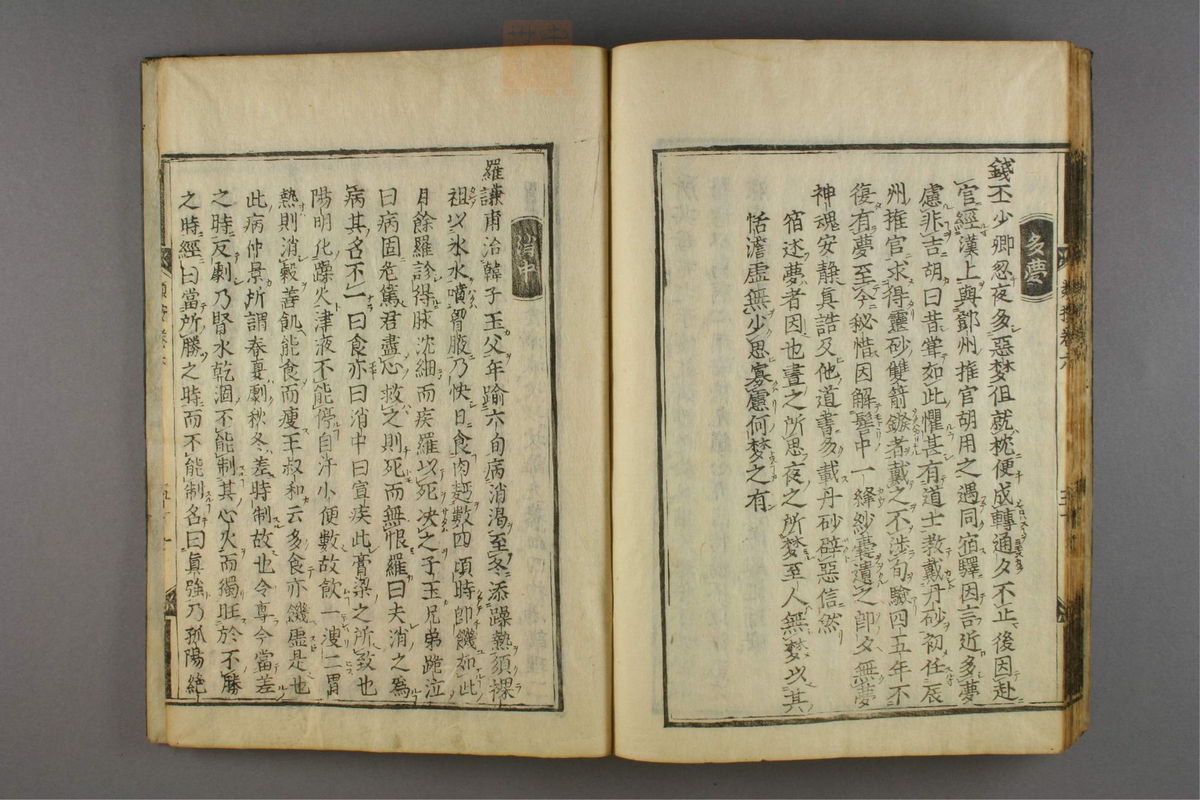 多夢
錢丕少卿忽夜多惡梦但就枕便成轉通夕不止後因赴
官經漢上與鄧州推官胡用之遇同宿驛因言近多夢
慮非吉胡曰昔甞如此懼甚有道士教戴丹砂初任辰
州推官求得靈砂雙箭鏃者戴之不涉旬驗四五年不
復有夢至今秘惜因解髻中一絳紗囊遺之即夕無夢
神魂安静真誥及他道書多載丹砂辟惡信然
宿述夢者因也晝之所思夜之所梦至人無梦以其
恬澹虚無少思寡慮何梦之有
消中
羅謙甫治韓子玉父年踰六旬病消渴至冬添躁熱須裸
袒以氷水噴胷腋乃快日食肉麪數四頃時即饑如此
月餘羅診得脉沈細而疾羅以死决之子玉兄弟跪泣
曰病固危篤君盡心救之則死而無恨羅曰夫消之為
病其名不一曰食亦曰消中曰宣疾此膏粱之所致也
陽明化躁火津液不能停自汗小便數故飲一溲二胃
熱則消穀善飢能食而瘦王叔和云多食亦饑虚是也
此病仲景所謂春夏劇秋冬差時制故也令尊今當差
之時反劇乃腎水乾涸不能制其心火而獨旺於不勝
之時經曰當所勝之時而不能制名曰眞強乃孤陽絶